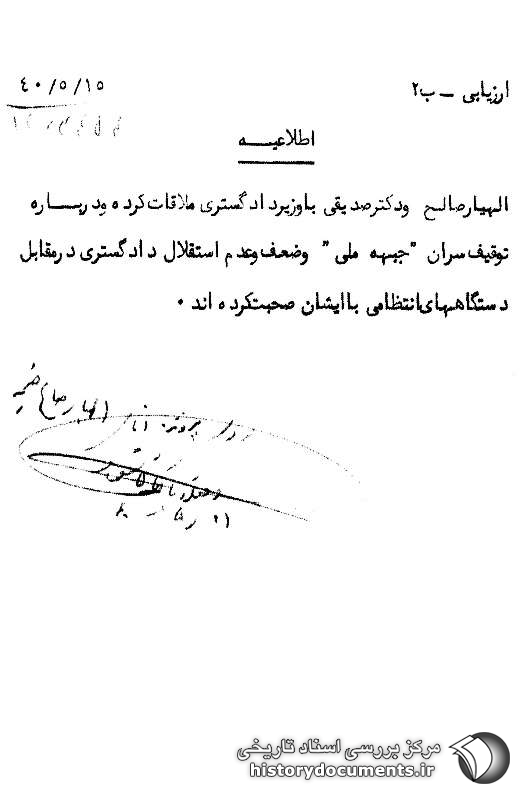 ارزیابی – ب۲
۴۰/۵/۱۵
اطلاعیه
الهیار صالح ودکتر صدیقی باوزیر دادگستری ملاقات کرده ودرباره
توقیف سران "جبهه ملی" وضعف وعدم استقلال دادگستری درمقابل
دستگاههای انتظامی باایشان صحبت کرده اند ۰
الهیار صالح ضمیمه
مرکز بررسی اسناد تاریخی
historydocuments.ir